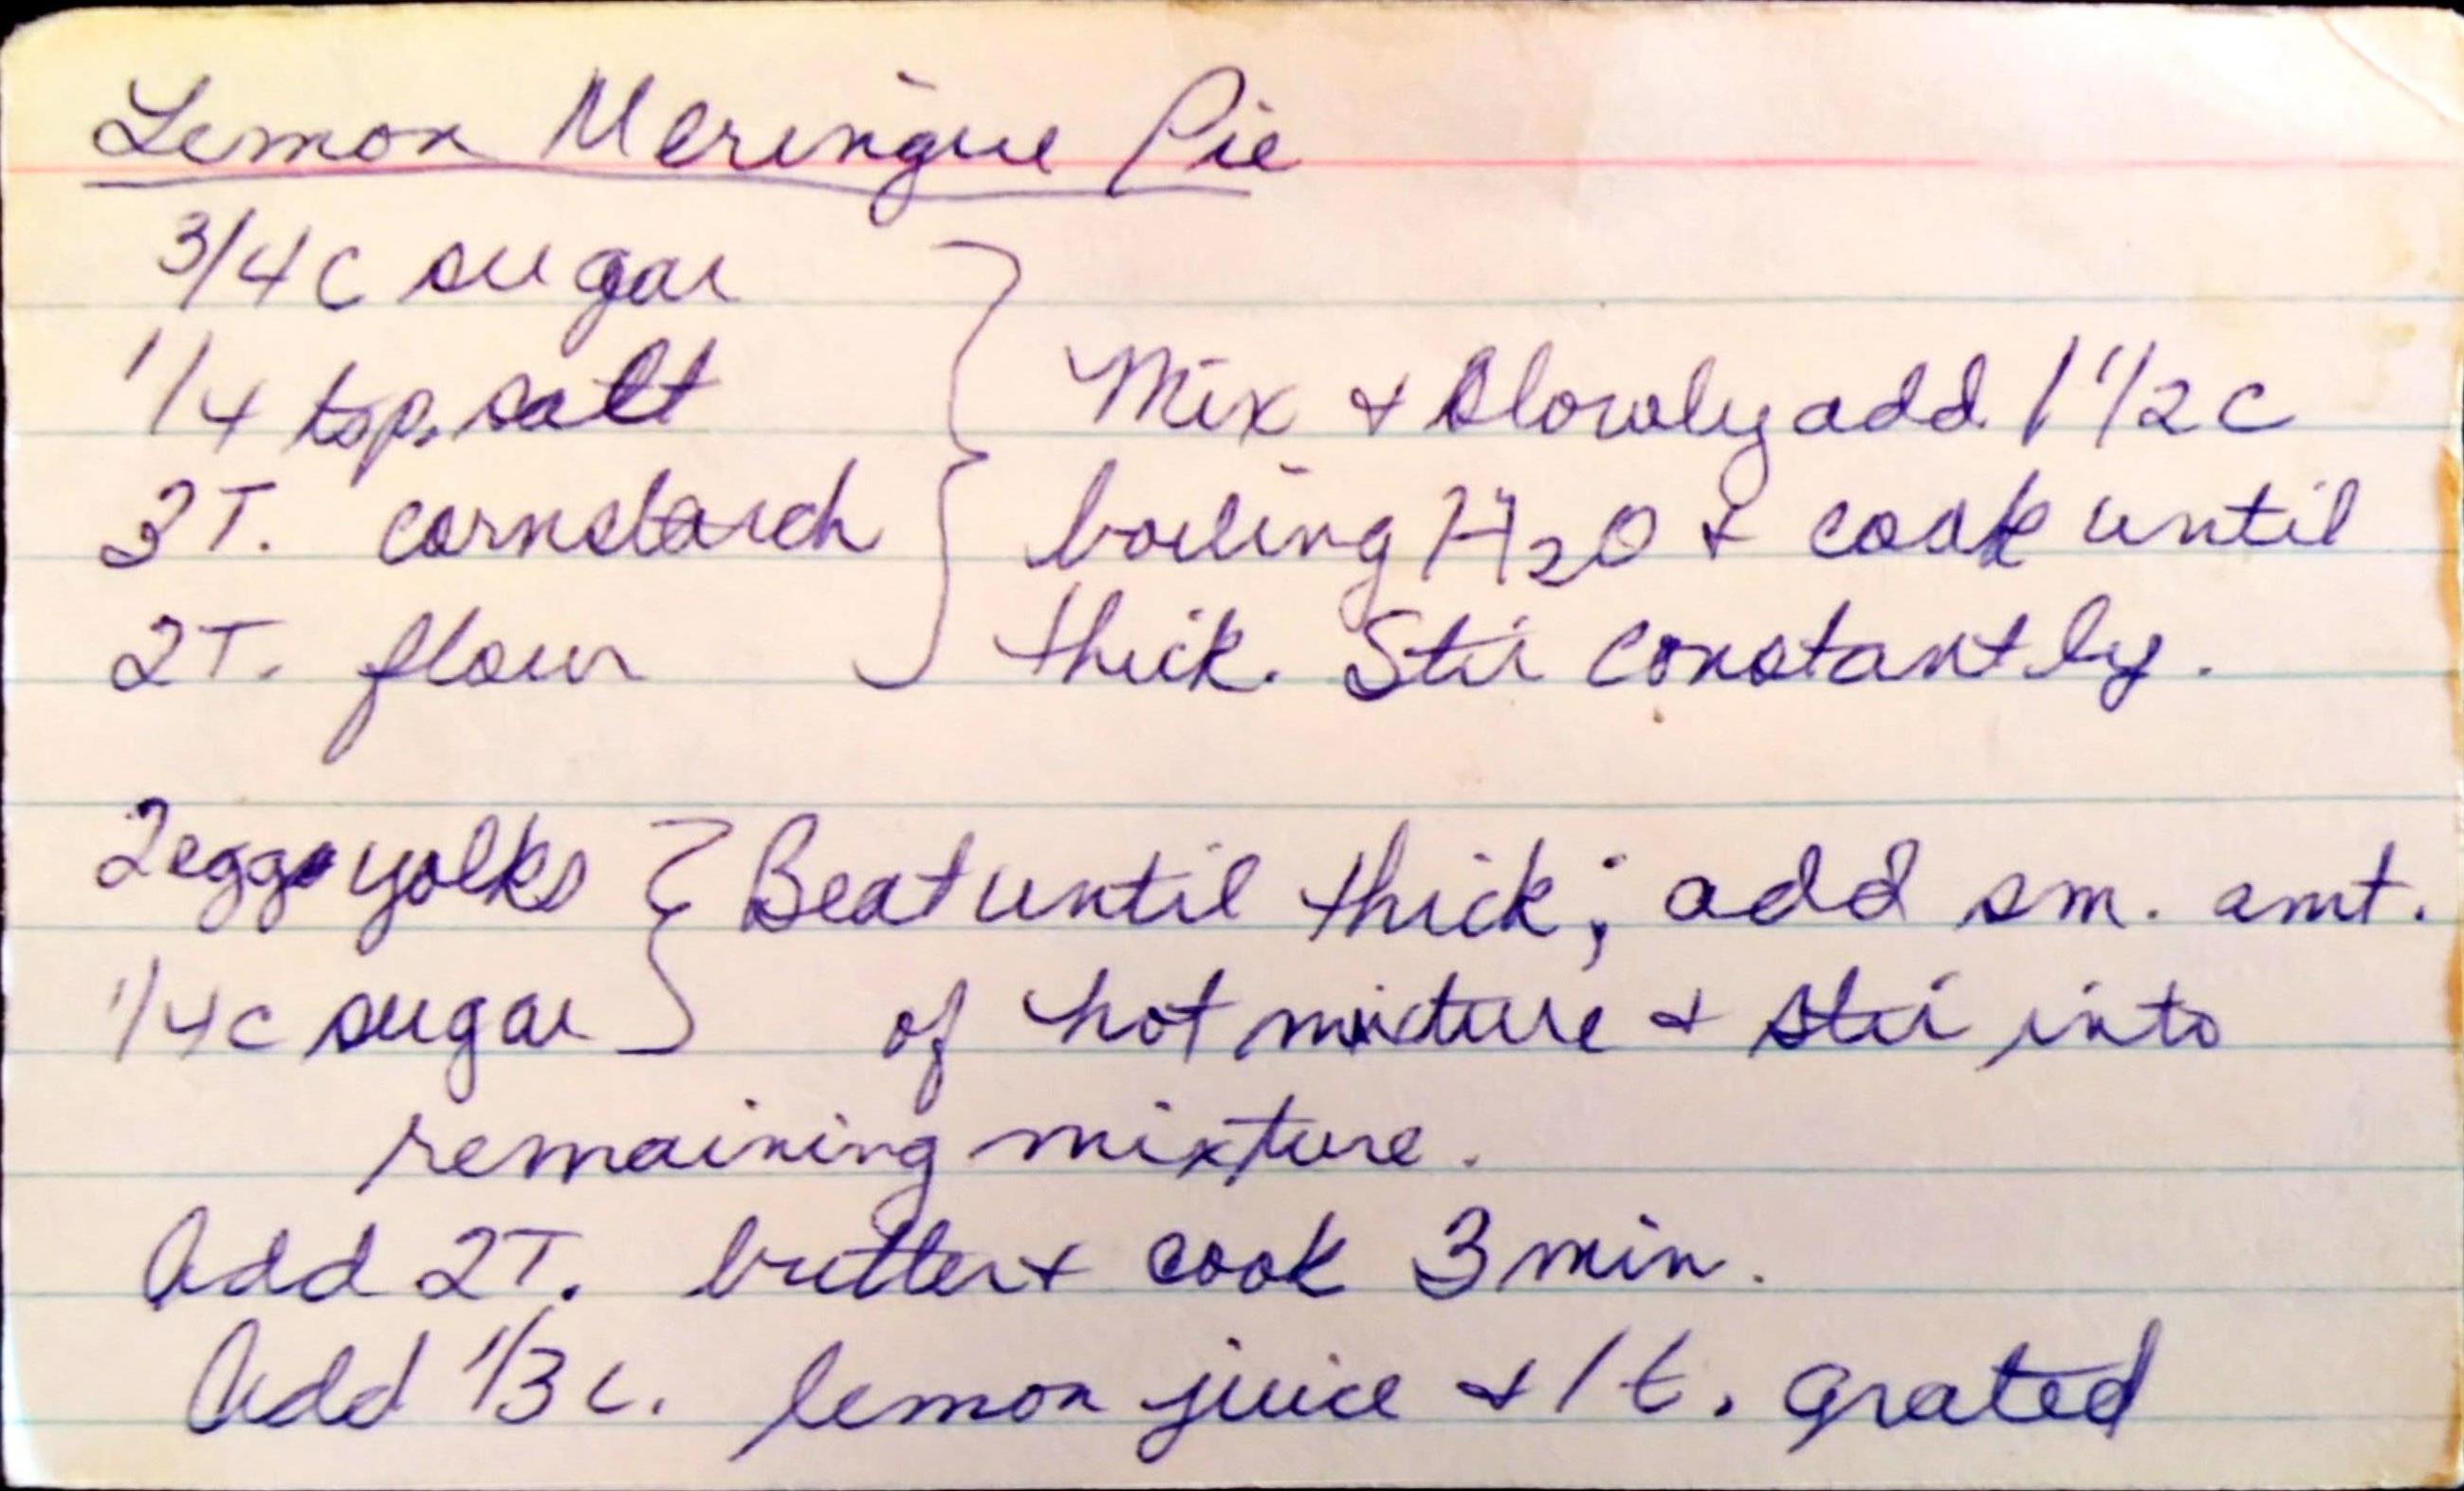 Lemon Meringue Pie
3/4 c sugar
1/4 tsp. salt
3T. cornstarch
2T. flour
Mix & slowly add 1 1/2 c
boiling H2O & cook until
thick. Stir constantly.
2 egg yolks
1/4 c sugar
Beat until thick; add sm. amt.
of hot mixture & stir into
remaining mixture.
Add 2T. butter & cook 3 min.
Add 1/3 c. lemon juice & 1 t. grated